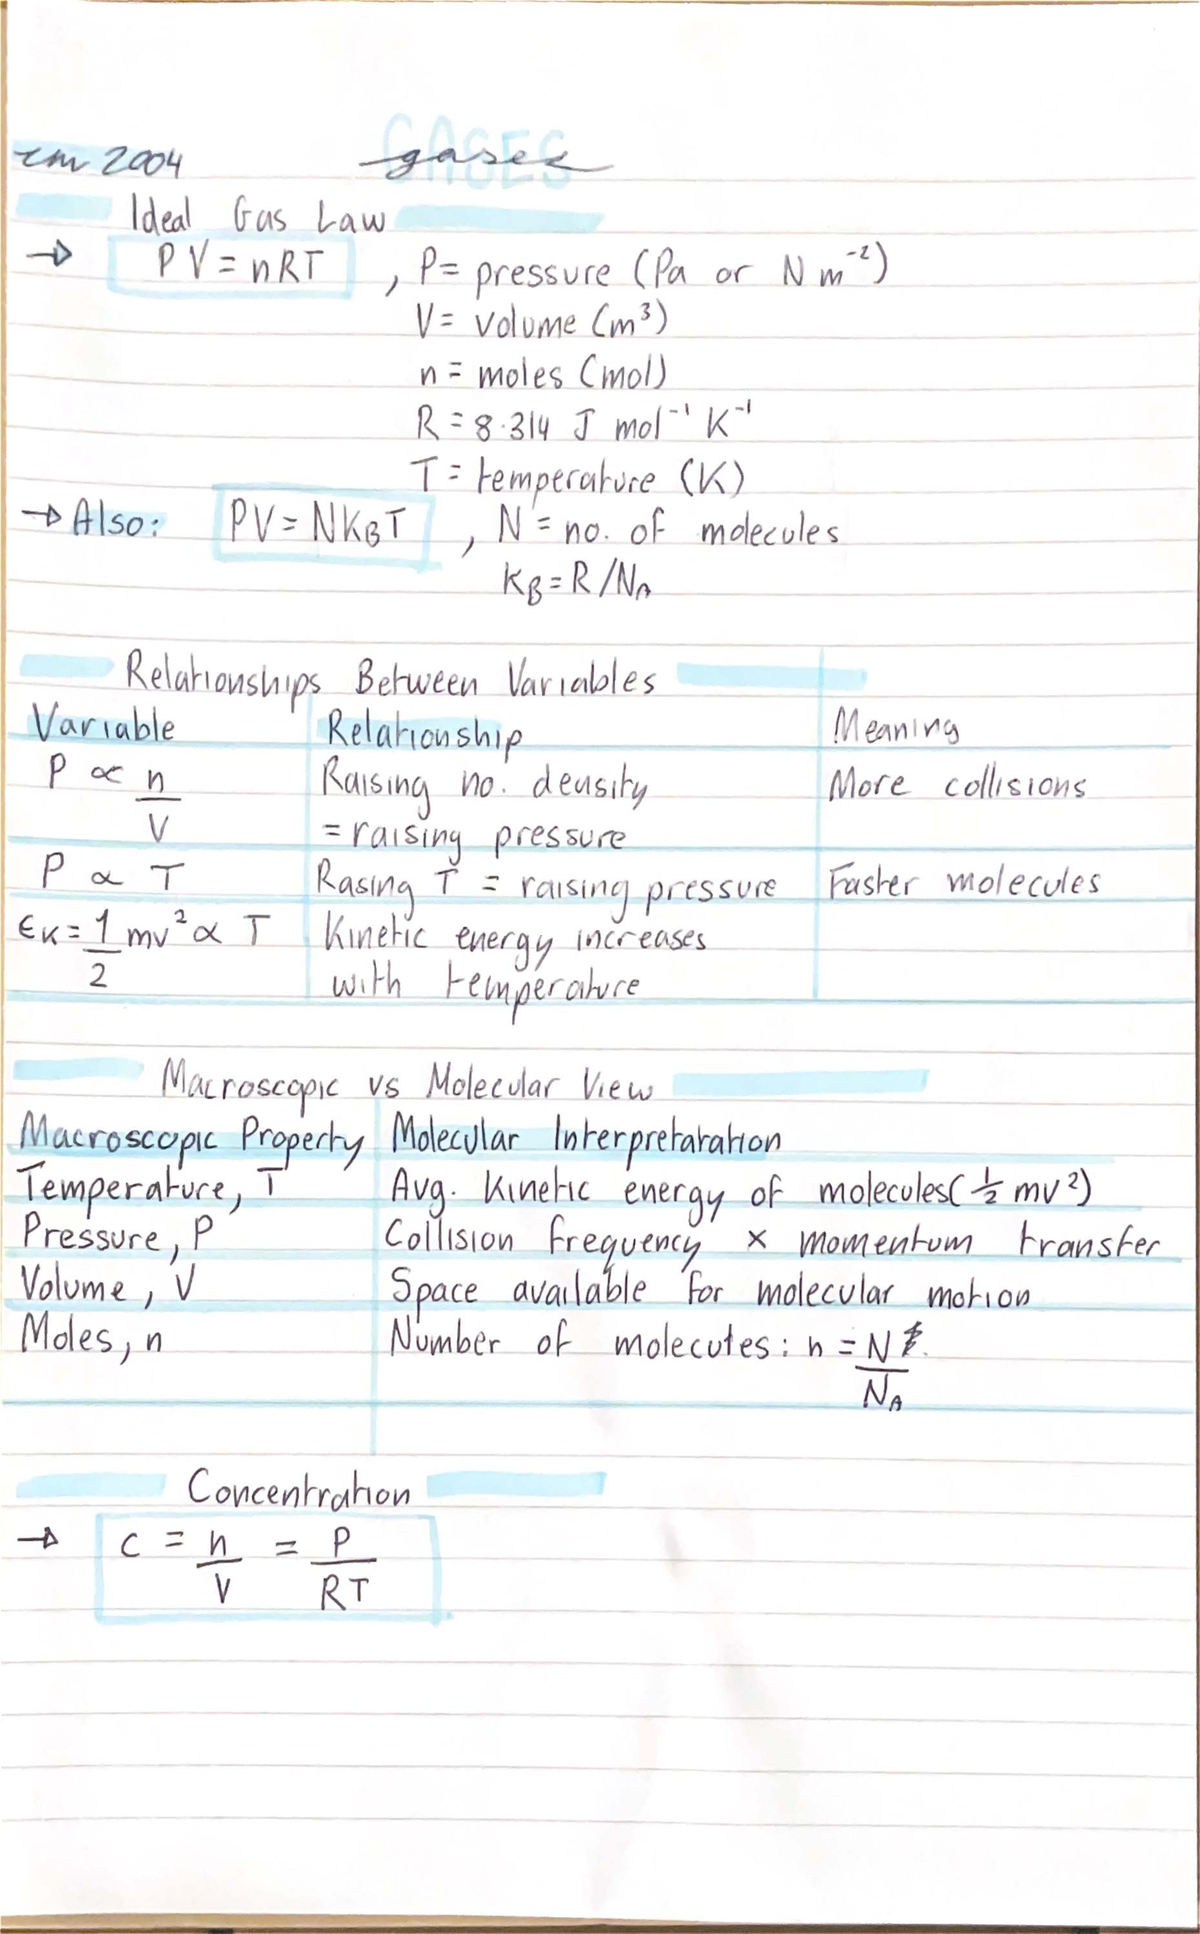 cm 2004 gases
GASES
Ideal Gas Law
→ PV = nRT , P = pressure (Pa or N m⁻²)
V = volume (m³)
n = moles (mol)
R = 8.314 J mol⁻¹ K⁻¹
T = temperature (K)
→ Also: PV = NK_BT , N = no. of molecules
K_B = R/N_A
Relationships Between Variables
Variable Relationship Meaning
P ∝ n/V Raising no. density More collisions
= raising pressure
P ∝ T Rasing T = raising pressure Faster molecules
ϵ_K = 1/2 mv² ∝ T Kinetic energy increases
with temperature
Macroscopic vs Molecular View
Macroscopic Property Molecular Interpretaration
Temperature, T Avg. Kinetic energy of molecules (½ mv²)
Pressure, P Collision frequency × momentum transfer
Volume, V Space available for molecular motion
Moles, n Number of molecules: n = N/N_A
Concentration
→ c = n/V = P/RT